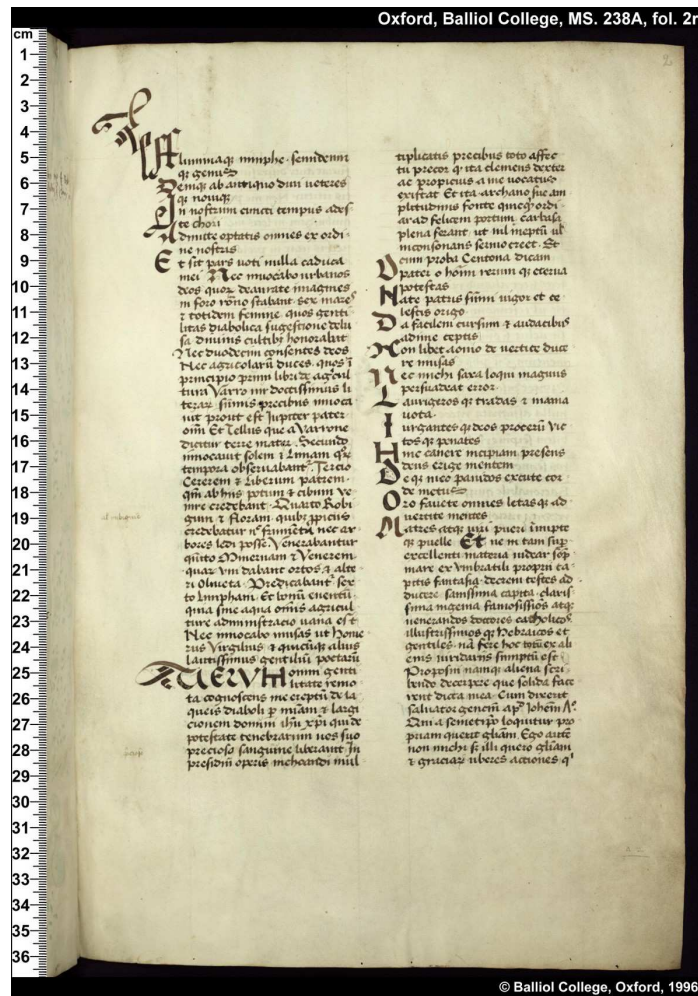 Oxford, Balliol College, MS. 238A, fol. 2r
cm
1
2
3
4
5
6
7
8
9
10
11
12
13
14
15
16
17
18
19
20
21
22
23
24
25
26
27
28
29
30
31
32
33
34
35
36
2
fluminaqꝫ nimphe semideum
qꝫ genus
Deniqꝫ ab antiquo diui ueteres
qꝫ nouiqꝫ
In nostrum cuncti tempus ades
te chori
Admitte optatis omnes ex ordi
ne nostris
Et sit pars uoti nulla caduca
mei Nec inuocabo urbanos
deos quoꝝ deaurate imagines
in foro stabant sex mares
⁊ totidem femine quos genti
litas diabolica sugestione delu
sa diuinis cultibꝫ honorabat
Nec duodecim consentes deos
Nec agricolarū duces quos ī
principio primi libri de agricul
tura Varro uir doctissimus li
teraꝝ sūmis precibus inuoca
uit prout est Jupiter pater
om̄ Et Tellus que a Varrone
dicitur terre mater. Secundo
inuocauit solem ⁊ Lunam
tempora obseruabant. Tercio
Cererem ⁊ Liberum patrem
ab his potum ⁊ cibum ue
nire credebant. Quarto Robi
gum ⁊ Floram quibꝫ
credebatur frumēta nec ar
bores ledi posse. Venerabantur
quīto Mineruam ⁊ Venerem
quaꝝ dabant ortos ⁊ alte
ri Oliueta. Predicabant sex
to Limpham. Et bonū euentū
quia sine aqua omīs agricul
ture administracio uana est
Nec inuocabo musas ut home
rus Virgilius ⁊ quicūqꝫ alius
lautissimus gentiliū poetarū
ITERVM omni genti
litate remo
ta cognoscens me ereptū de la
queis diaboli ꝑ miram ⁊ largi
cionem domini ihū xp̄i qui de
potestate tenebrarum nos suo
precioso sanguine liberauit In
presidiū operis inchoandi mul
tiplicatis precibus toto affec
tu precor qꝫ ita clemens dexter
ac propicius a me uocatus
existat Et ita archano sue am
plitudinis fonte ordi
ar ad felicem portum carbasa
plena ferant ut nil ineptū ul
inconsonans sermo creet. Et
cum proba Centona dicam
O pater o hoīm rerum qꝫ eterna
potestas
Nate patris sūmi uigor et ce
lestis origo
Da facilem cursum ⁊ audacibus
adnue ceptis
Non libet aonio de uertice duce
re musas
Nec michi saxa loqui magnus
persuadeat error
Laurigeros qꝫ tradas ⁊ inania
uota
Iurgantes qꝫ deos procerū uic
tos qꝫ penates
Hinc canere incipiam presens
deus erige mentem
Deqꝫ meo pauidos excute cor
de metus
Oro fauete omnes letas qꝫ ad
uertite mentes
Matres atqꝫ uiri pueri inupte
qꝫ puelle Et ne in tam sup
excellenti materia uidear sop
mare ex umbratili proprii ca
pitis fantasia decreui testes ad
ducere sanissima capita claris
sima ingenia famosissīos atqꝫ
uenerandos doctores catholicos
illustrissimos qꝫ hebraicos et
gentiles nā fere hoc totū ex ali
enis iuridicis sūmptū est
Proposui namqꝫ aliena scri
bendo decerpere que solida face
rent dicta mea. Cum dixerit
saluator gencm̄ apd Iohem
Qui a semetip̄o loquitur pro
priam querit gliam. Ego autē
non michi sꝫ illi quero gliam
⁊ graciaꝝ uberes acciones
© Balliol College, Oxford, 1996